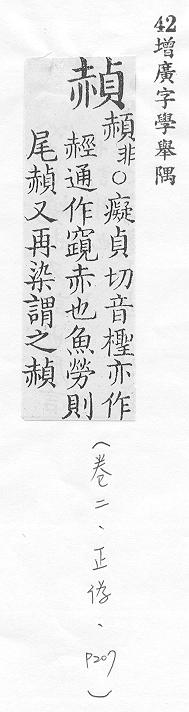 42增廣字學舉隅
赬
頳非○癡貞切音檉亦作
䞓通作竀赤也魚勞則
尾赬又再染謂之赬
（卷二、正俗、P207）